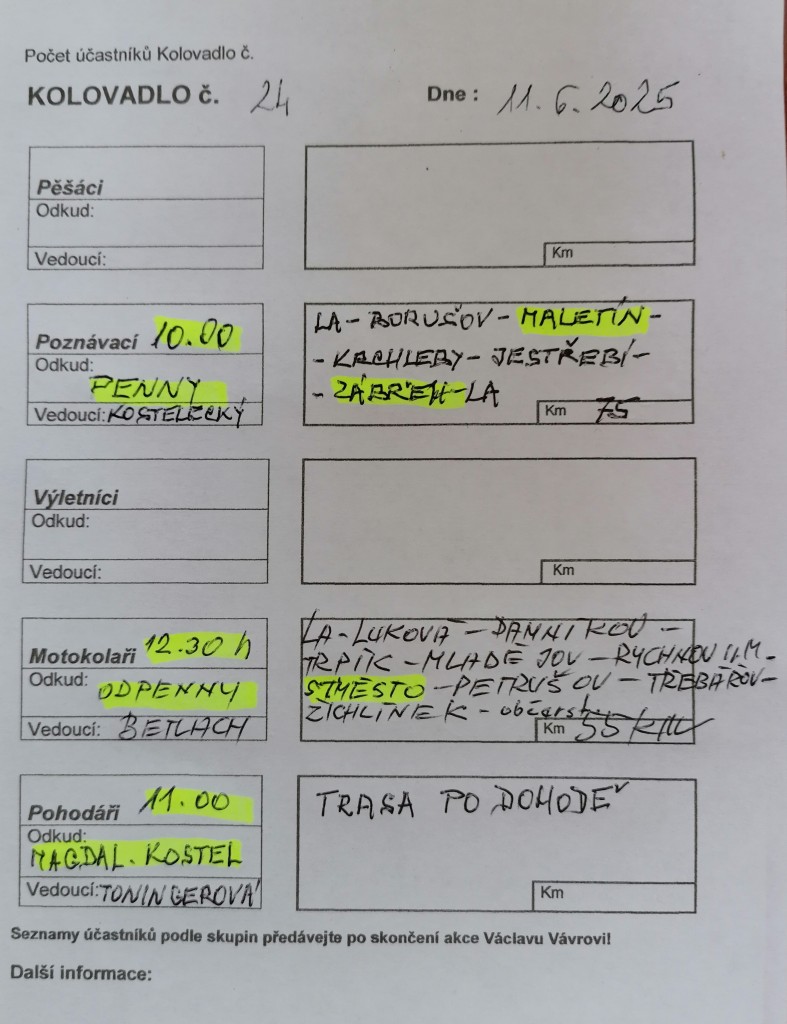 Počet účastníků Kolovadlo č.
KOLOVADLO č. 24 Dne : 11.6.2025
Pěšáci
Odkud:
Vedoucí:
Km
Poznávací 10.00
Odkud:
PENNY
Vedoucí: KOSTELECKÝ
LA - BORUŠOV - MALETÍN -
- KRCHLEBY - JESTŘEBÍ -
- ZÁBREH - LA
Km 75
Výletníci
Odkud:
Vedoucí:
Km
Motokolaři 12.30 h
Odkud:
OD PENNY
Vedoucí: BETLACH
LA - LUKOVÁ - DAMNIKOV -
TRPÍK - MLADĚJOV - RYCHNOV n.M -
ST.MĚSTO - PETRUŠOV - TŘEBAŘOV -
ZICHLÍNEK - občerstv.
Km 55 km
Pohodáři 11.00
Odkud:
MAGDAL. KOSTEL
Vedoucí: TONINGEROVÁ
TRASA PO DOHODĚ
Km
Seznamy účastníků podle skupin předávejte po skončení akce Václavu Vávrovi!
Další informace: